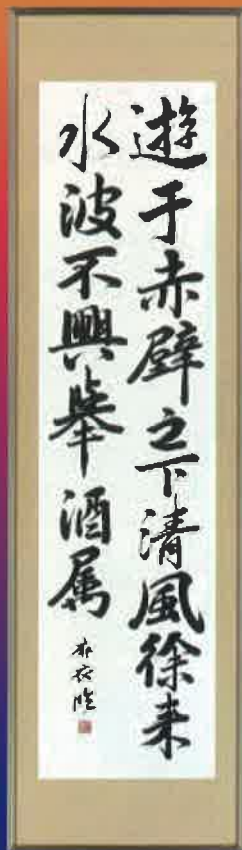 遊于赤壁之下清風徐来
水波不興舉酒属